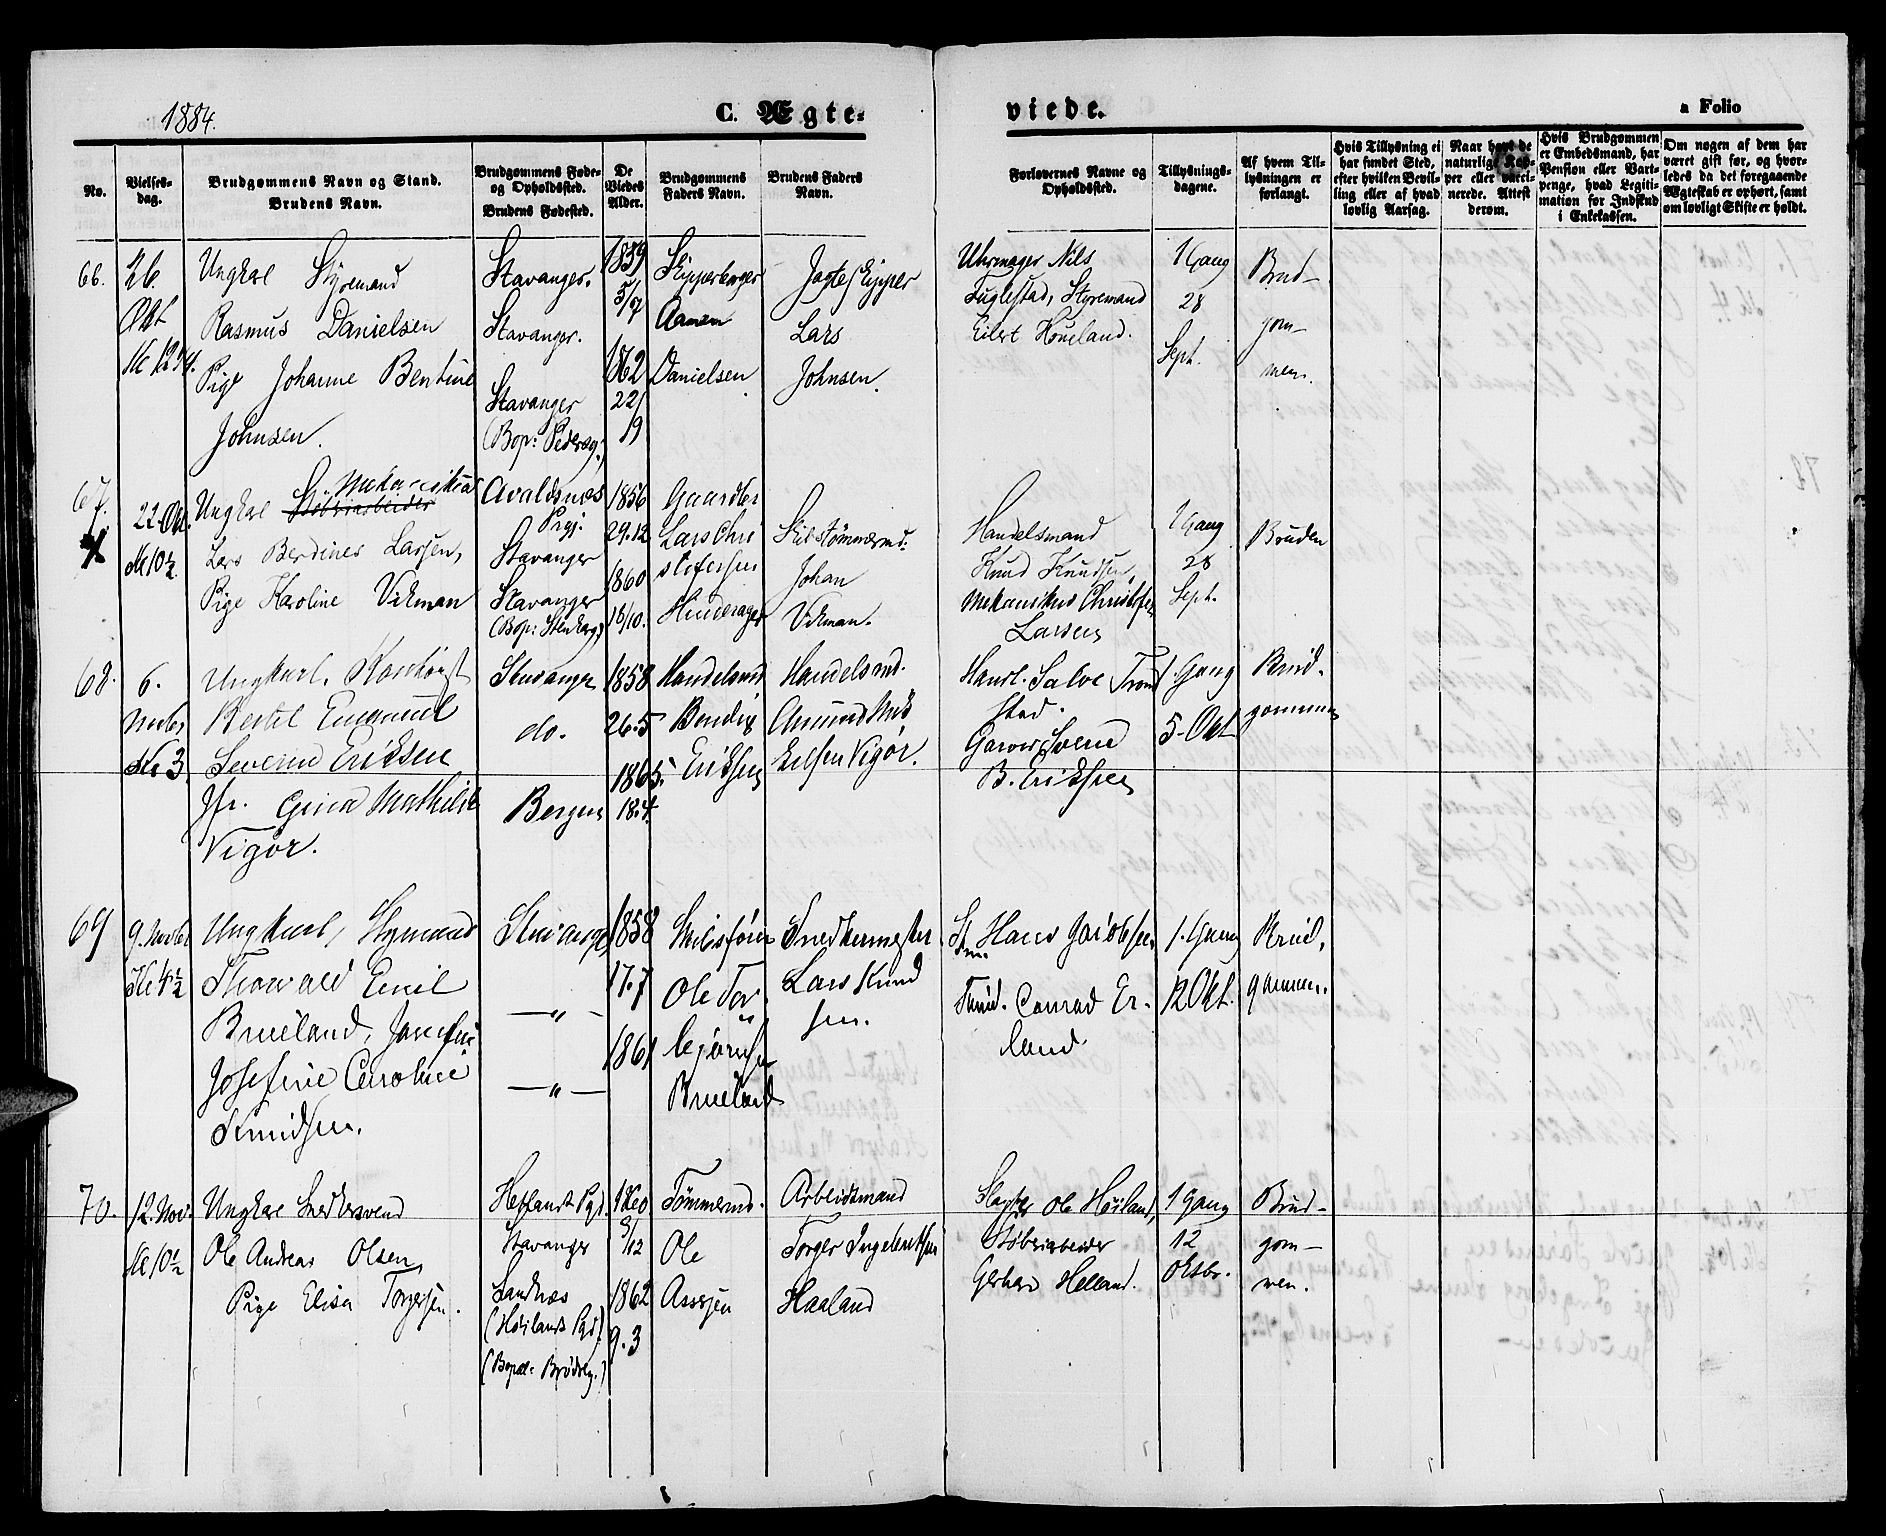 1884.
C. Ægte-
viede.
a Folio
No.
Vielses-
dag.
Brudgommens Navn og Stand.
Brudens Navn.
Brudgommens Føde-
og Opholdssted.
Brudens Fødested.
De
Viedes
Alder.
Brudgommens
Faders Navn.
Brudens Faders
Navn.
Forlovernes Navne og
Opholdssted.
Tillysnings-
dagene.
Af hvem Til-
lysningen er
forlangt.
Hvis Tillysning ei
har fundet Sted,
efter hvilken Bevil-
ling eller af hvad
lovlig Aarsag.
Naar have de
naturlige Kop-
per eller vacci-
nerede. Attest
derom.
Hvis Brudgommen
er Embedsmand, har
Pension eller Vart-
penge, hvad Legiti-
mation for Indskud
i Enkekassen.
Om nogen af dem har
været gift før, og hvor-
ledes da det foregaaende
Ægteskab er ophørt, samt
om lovligt Skifte er holdt.
66.
26.
Okt
Kl 12
Ungkar Styrmand
Rasmus Danielsen
Pige Johanne Bentine
Johnsen.
Stavanger.
Stavanger.
Stavanger
(Bop: Pedersg.)
1859
5/7
1862
22/
9
Skipperborger
Aanen
Danielsen
Jagteskipper
Lars
Johnsen.
Uhrmager Nils
Fuglestad, Styremand
Eilert Houeland.
1 Gang
28
Sept.
Brud-
gom-
men.
67.
22 Okt.
Kl 10½.
Mekanikus
Ungkar Støberiarbeider
Lars Berdines Larsen,
Pige Karoline Vikman
Avaldsnes
Prgj.
Stavanger
Stavanger
(Bop: Stenkarg)
1856
29.12
1860
18/10.
Gaardbr
Lars Chri
stofersen
Hinderager
Skibstømmermd.
Johan
Vikman.
Handelsmand
Knud Knudsen,
Mekanikus Christofer
Larsen
1 Gang
28
Sept.
Bruden
68.
6.
Novbr,
Kl 3
Ungkarl,
Bertel Emanuel
Severin Eriksen
Jfr. Gina Mathilde
Vigør.
Stavanger
do.
Bergen
1858
26.5
1865.
18.4.
Handelsmd
Bendix
Eriksen
Handelsmd.
Amund
Eilsen Vigør.
Handl. Salve Trom
stad.
Garver Svend
B. Eriksen
1 Gang
5. Okt
Brud.
gommen
69
9. Novbr
Kl 4½
Ungkarl, Styrmand
Thorvald Emil
Brueland, Jomfru
Josefine Caroline
Knudsen.
Stavanger
—"—
—"—
1858
17.7
1861
Skibsfører
Ole Tor
bjørnsen
Brueland
Snedkermester
Lars Knud
sen.
Stm. Hans Jacobsen
Conrad Er-
land.
1. Gang
12 Okt.
Brud,
gommen.
70.
12. Nov.
Kl 10½
Ungkar Snedkersvend
Ole Andreas Olsen,
Pige Elisa Torgersen.
Hetlands Pgd.
Stavanger
Sandnæs
(Høilands Pgd.)
(Bopæl: Brødreg.)
1860
5/12
1862
9.3
Tømmermd.
Ole
Assersen
Arbeidsmand
Torger Ingebretsen
Haaland
Slagter Ole Høiland,
Støberiarbeider
Gerhard Helland.
1 Gang
12
Oktbr.
Brud-
gom-
men.